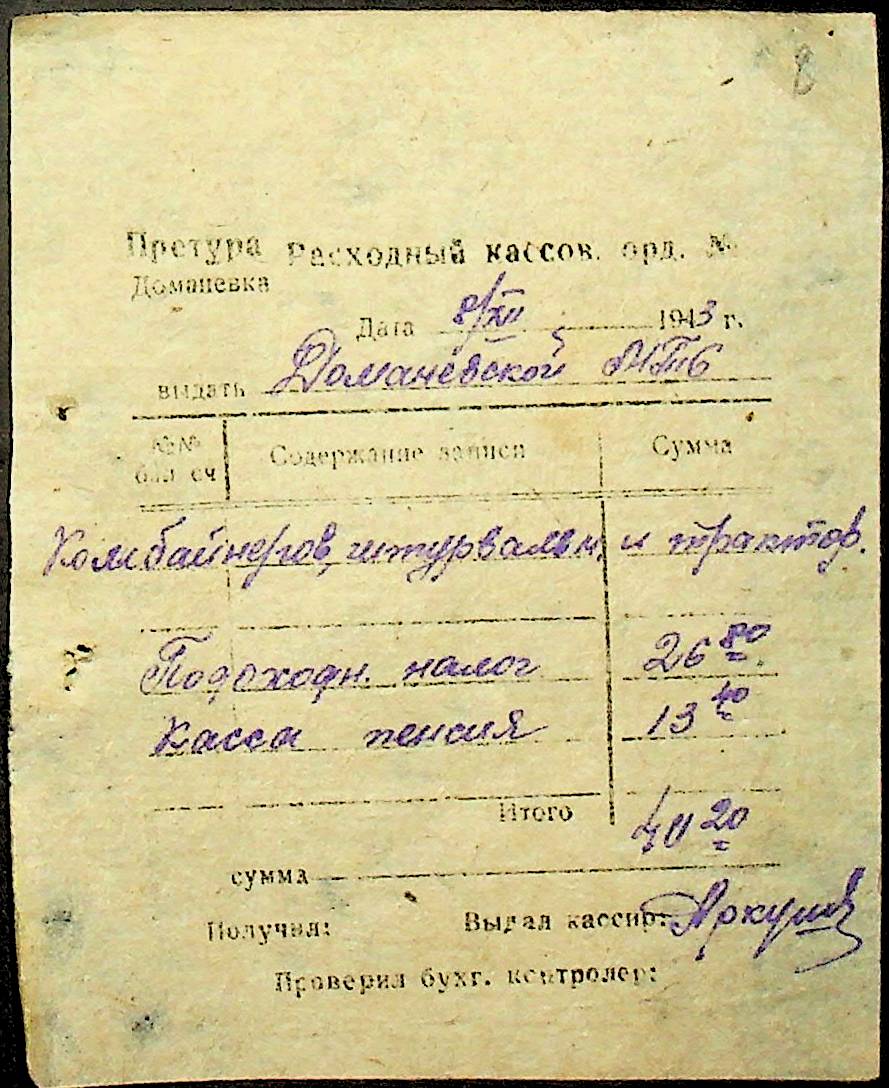 8
Претура Расходный кассов. орд. №
Доманевка
Дата 8/XII 1943 г.
выдать Доманевской МТС
№№ бал сч Содержание записи Сумма
Комбайнеров, штурвальн. и трактор.
Подоходн. налог 26 80
Касса пенсия 13 40
Итого 40 20
сумма
Получил: Выдал кассир: Аркуша
Проверил бухг. контролер: